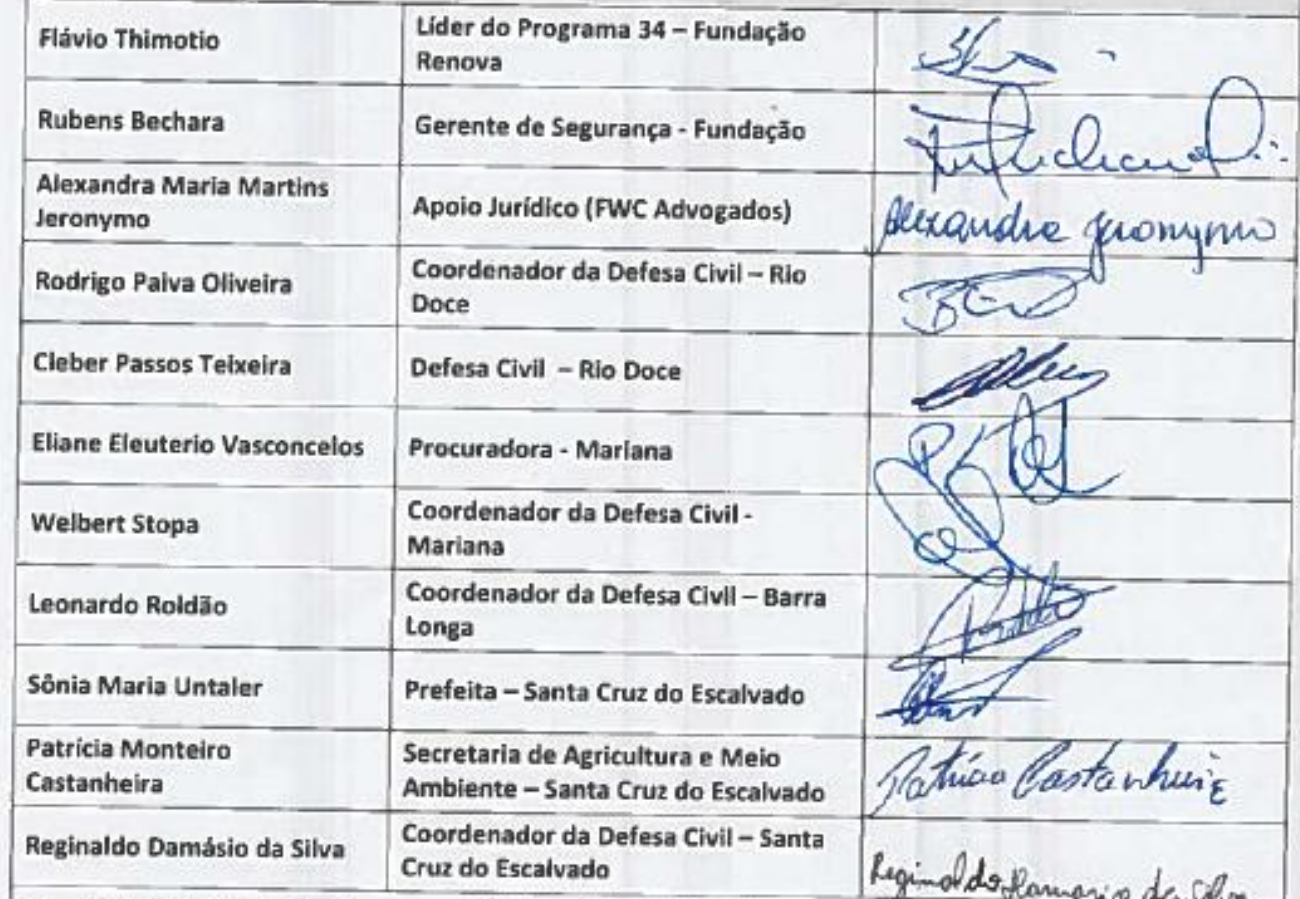 Flávio Thimotio
Líder do Programa 34 – Fundação
Renova
Rubens Bechara
Gerente de Segurança - Fundação
Alexandra Maria Martins
Jeronymo
Apoio Jurídico (FWC Advogados)
Alexandra Jeronymo
Rodrigo Paiva Oliveira
Coordenador da Defesa Civil – Rio
Doce
Cleber Passos Teixeira
Defesa Civil – Rio Doce
Eliane Eleuterio Vasconcelos
Procuradora - Mariana
Welbert Stopa
Coordenador da Defesa Civil -
Mariana
Leonardo Roldão
Coordenador da Defesa Civil – Barra
Longa
Sônia Maria Untaler
Prefeita – Santa Cruz do Escalvado
Patrícia Monteiro
Castanheira
Secretaria de Agricultura e Meio
Ambiente – Santa Cruz do Escalvado
Patrícia Castanheira
Reginaldo Damásio da Silva
Coordenador da Defesa Civil – Santa
Cruz do Escalvado
Reginaldo Damasio da Silva